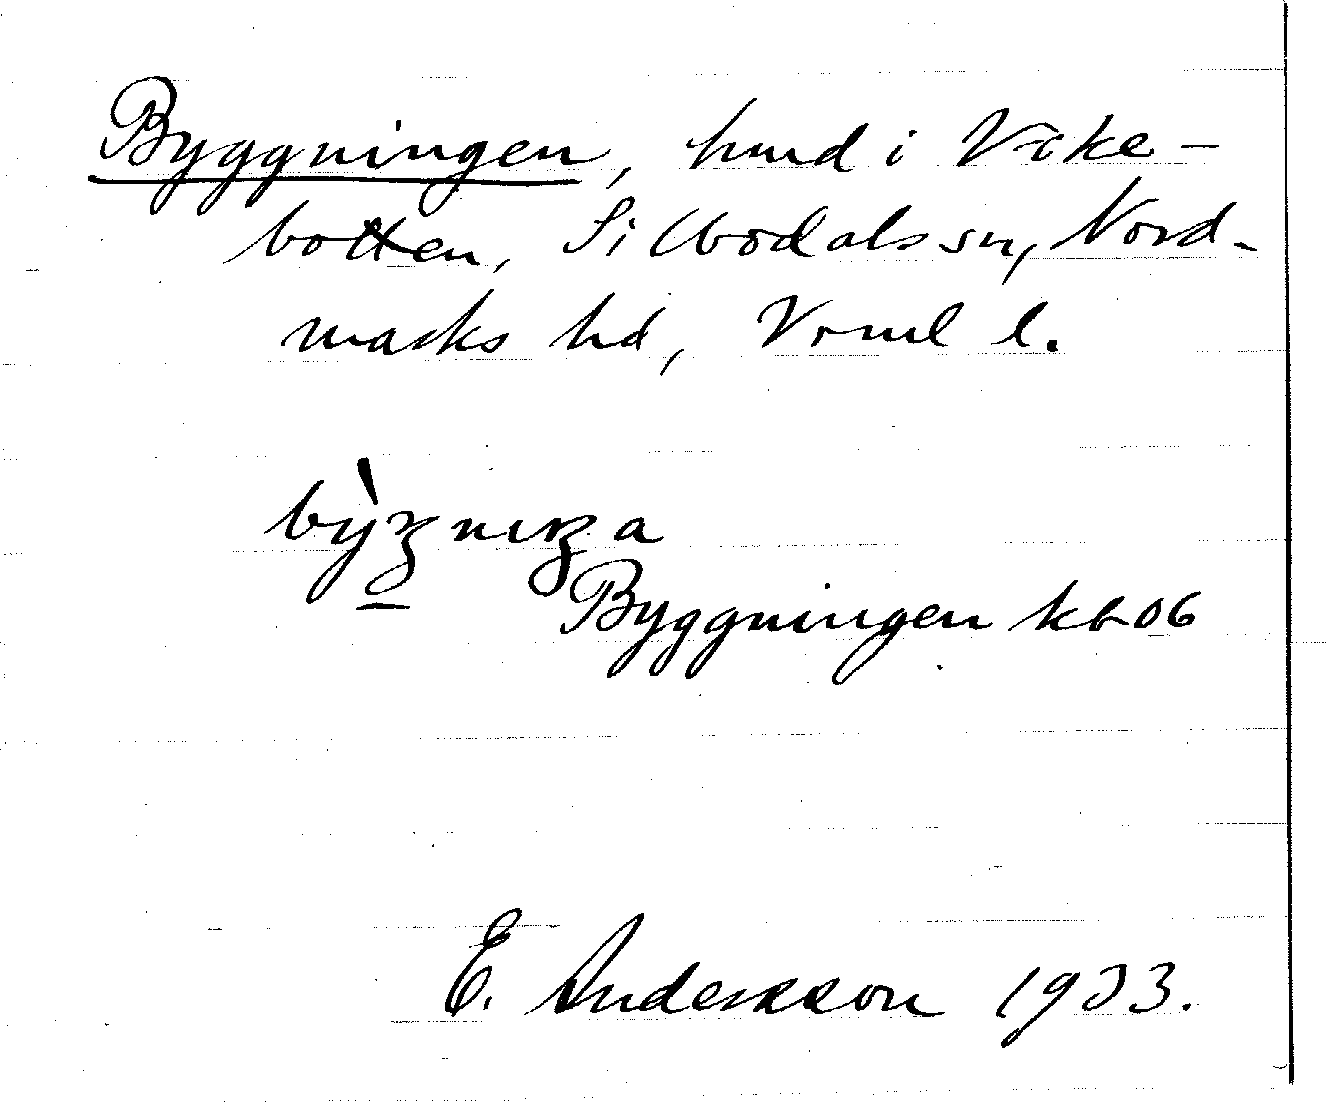 Byggningen, hmd i Vike-
botten, Silbodals sn, Nord-
marks hd, Vrml l.
Byggningen kb 06
E. Andersson 1933.